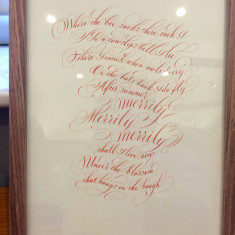 Where the bee sucks, there suck I
In a cowslip's bell I lie
There I couch when owls do cry
On the bat's back I do fly
After summer
merrily
Merrily
merrily
shall I live now
Under the blossom
that hangs on the bough